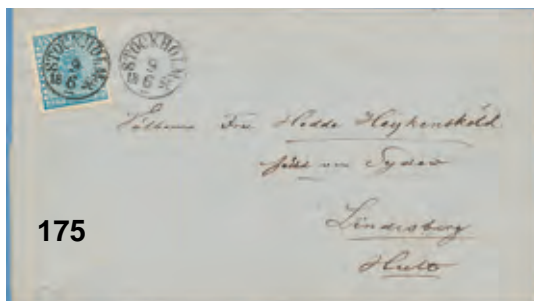 STOCKHOLM
9
6
STOCKHOLM
9
6
Fru Hedda Heykensköld
född von Sydow
Lindesberg
Hult
175